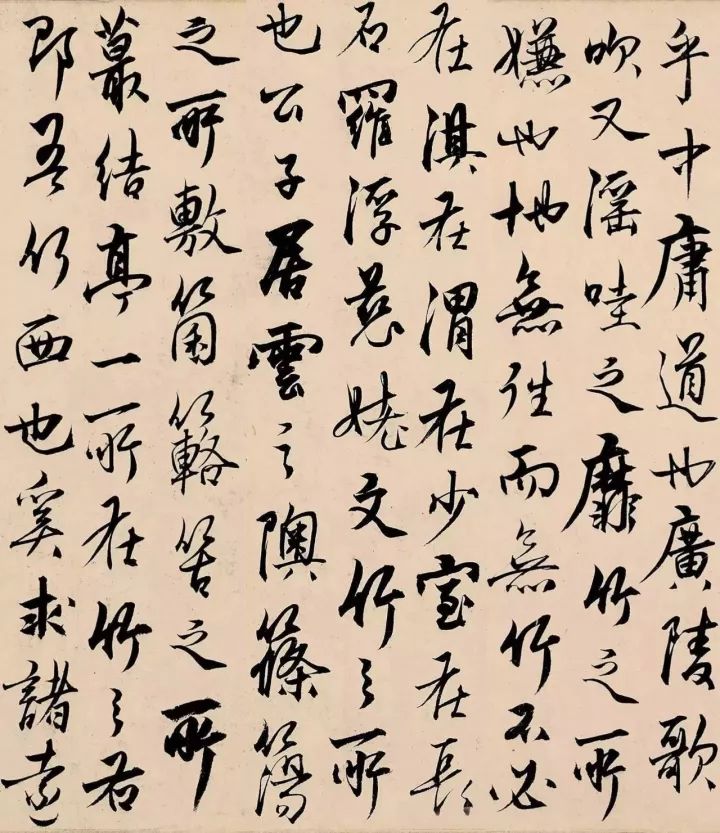 乎中庸道也廣陵歌
吹又滛哇之靡竹之所
嫌也地無往而無竹不必
在淇在渭在少室在長
石羅浮慈姥文竹之所
也公子居雲之隩篠簜
之所敷箘簬箁之所
蕞結亭一所在竹之右
即吾竹西也奚求諸遠